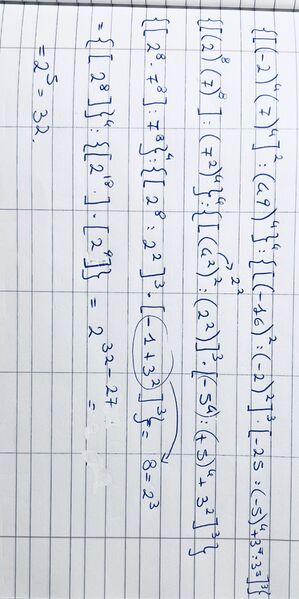 {[(-2)⁴(7)⁴]² : (49)⁴}⁴ : {[(-16)² : (-2)²]³ · [-25 : (-5)⁴ + 3⁷ : 3⁵]³}
{[(2)⁸ (7)⁸] : (7²)⁴}⁴ : {[(4²)² : (2²)]³ · [-5⁴ : (+5)⁴ + 3²]³}
2²
{[2⁸ · 7⁸] : 7⁸}⁴ : {[2⁸ : 2²]³ · [-1 + 3²]³} = 8 = 2³
= {[2⁸]}⁴ : {[2¹⁸] · [2⁹]} = 2³²⁻²⁷ =
= 2⁵ = 32.